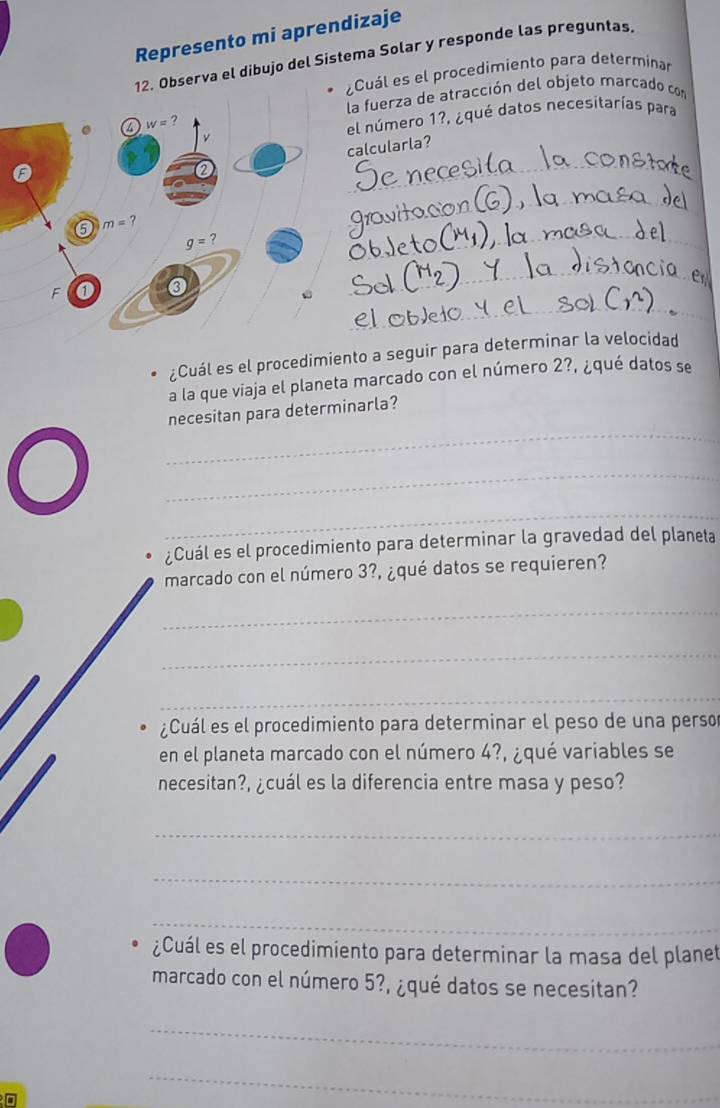 Represento mi aprendizaje
12. Observa el dibujo del Sistema Solar y responde las preguntas.
• ¿Cuál es el procedimiento para determinar
la fuerza de atracción del objeto marcado con
el número 1?, ¿qué datos necesitarías para
calcularla?
Se necesita la constante
gravitacion (G), la masa del
objeto (M₁), la masa del
Sol (M₂) y la distancia en
el objeto y el sol (r²).
4 w = ?
v
F
2
5 m = ?
g = ?
3
F 1
• ¿Cuál es el procedimiento a seguir para determinar la velocidad
a la que viaja el planeta marcado con el número 2?, ¿qué datos se
necesitan para determinarla?
• ¿Cuál es el procedimiento para determinar la gravedad del planeta
marcado con el número 3?, ¿qué datos se requieren?
• ¿Cuál es el procedimiento para determinar el peso de una person
en el planeta marcado con el número 4?, ¿qué variables se
necesitan?, ¿cuál es la diferencia entre masa y peso?
• ¿Cuál es el procedimiento para determinar la masa del planet
marcado con el número 5?, ¿qué datos se necesitan?